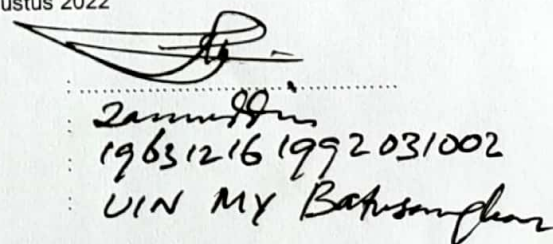 ustus 2022
:
: Zainuddin
: 19631216 1992 031002
: UIN MY Batusangkar